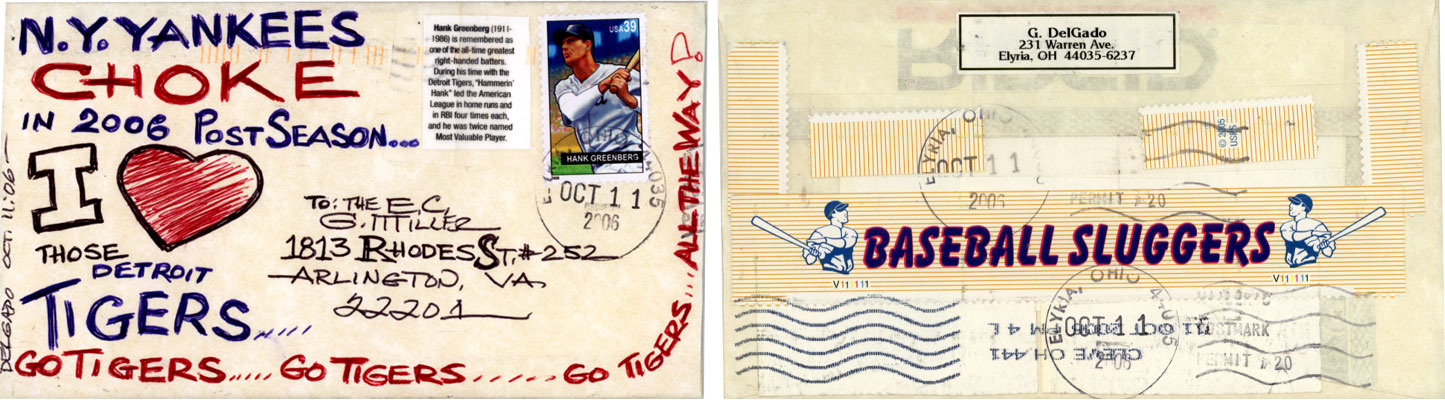 N.Y. YANKEES
CHOKE
IN 2006 POST SEASON...
I
THOSE
DETROIT
TIGERS.....
GO TIGERS..... GO TIGERS...... GO TIGERS.... ALL THE WAY!
DELGADO OCT. 11:06-
Hank Greenberg (1911-
1986) is remembered as
one of the all-time greatest
right-handed batters.
During his time with the
Detroit Tigers, "Hammerin'
Hank" led the American
League in home runs and
in RBI four times each,
and he was twice named
Most Valuable Player.
USA 39
HANK GREENBERG
OCT 11
2006
TO: THE E.C.
G. MILLER
1813 RHODES ST. #252
ARLINGTON, VA.
22201
G. DelGado
231 Warren Ave.
Elyria, OH 44035-6237
ELYRIA, OHIO
OCT 11
2006
PERMIT #20
© 2005
USPS
BASEBALL SLUGGERS
V11111
V11111
ELYRIA, OHIO 44035
OCT 11
2006
POSTMARK
PERMIT #20
11 OCT 2006 PM 4 L
CLEVE OH 441